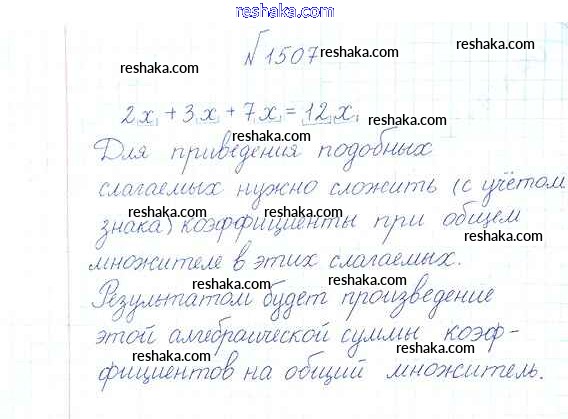 reshaka.com
№1507
reshaka.com
reshaka.com
reshaka.com
2x + 3x + 7x = 12x
reshaka.com reshaka.com
Для приведения подобных
reshaka.com
слагаемых нужно сложить (с учётом
reshaka.com reshaka.com
знака) коэффициенты при общем
reshaka.com
множителе в этих слагаемых.
reshaka.com reshaka.com
Результатом будет произведение
reshaka.com
этой алгебраической суммы коэф-
reshaka.com reshaka.com
фициентов на общий множитель.
reshaka.com